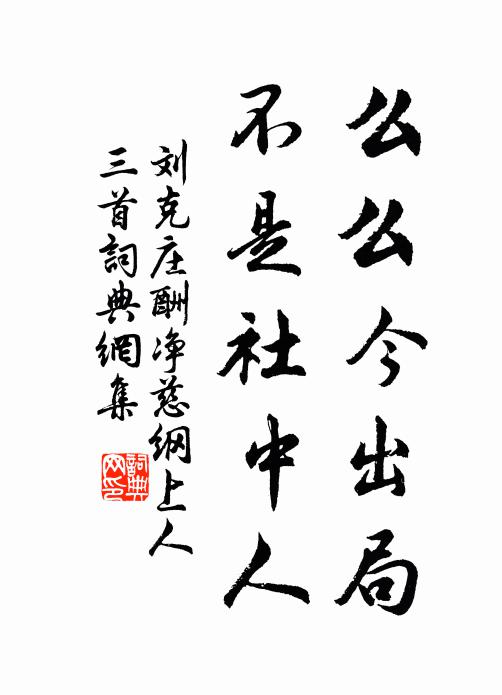 么么今出局
不是社中人
刘克庄酬净慈纲上人
三首词典網集
詞典网印